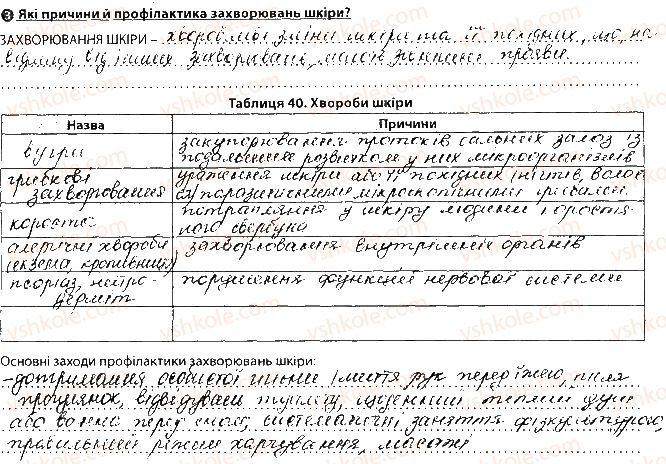 3 Які причини й профілактика захворювань шкіри?
ЗАХВОРЮВАННЯ ШКІРИ – хворобливі зміни шкіри та її похідних, що, на
відміну від інших захворювань, мають зовнішні прояви.
Таблиця 40. Хвороби шкіри
Назва Причини
вугри закупорювання протоків сальних залоз із
подальшим розвитком у них мікроорганізмів
грибкові ураження шкіри або її похідних (нігтів, волос
захворювання ся) паразитичними мікроскопічними грибами
короста потрапляння у шкіру людини коростя-
ного свербуна
алергічні хвороби захворювання внутрішніх органів
(екзема, кропивниця)
псоріаз, нейро- порушення функцій нервової системи
дерміт
Основні заходи профілактики захворювань шкіри:
-дотримання особистої гігієни (миття рук перед їжею, після
прогулянок, відвідувань туалету, щоденний теплий душ
або ванна перед сном), систематичні заняття фізкультурою,
правильний режим харчування, масажі
vshkole.com